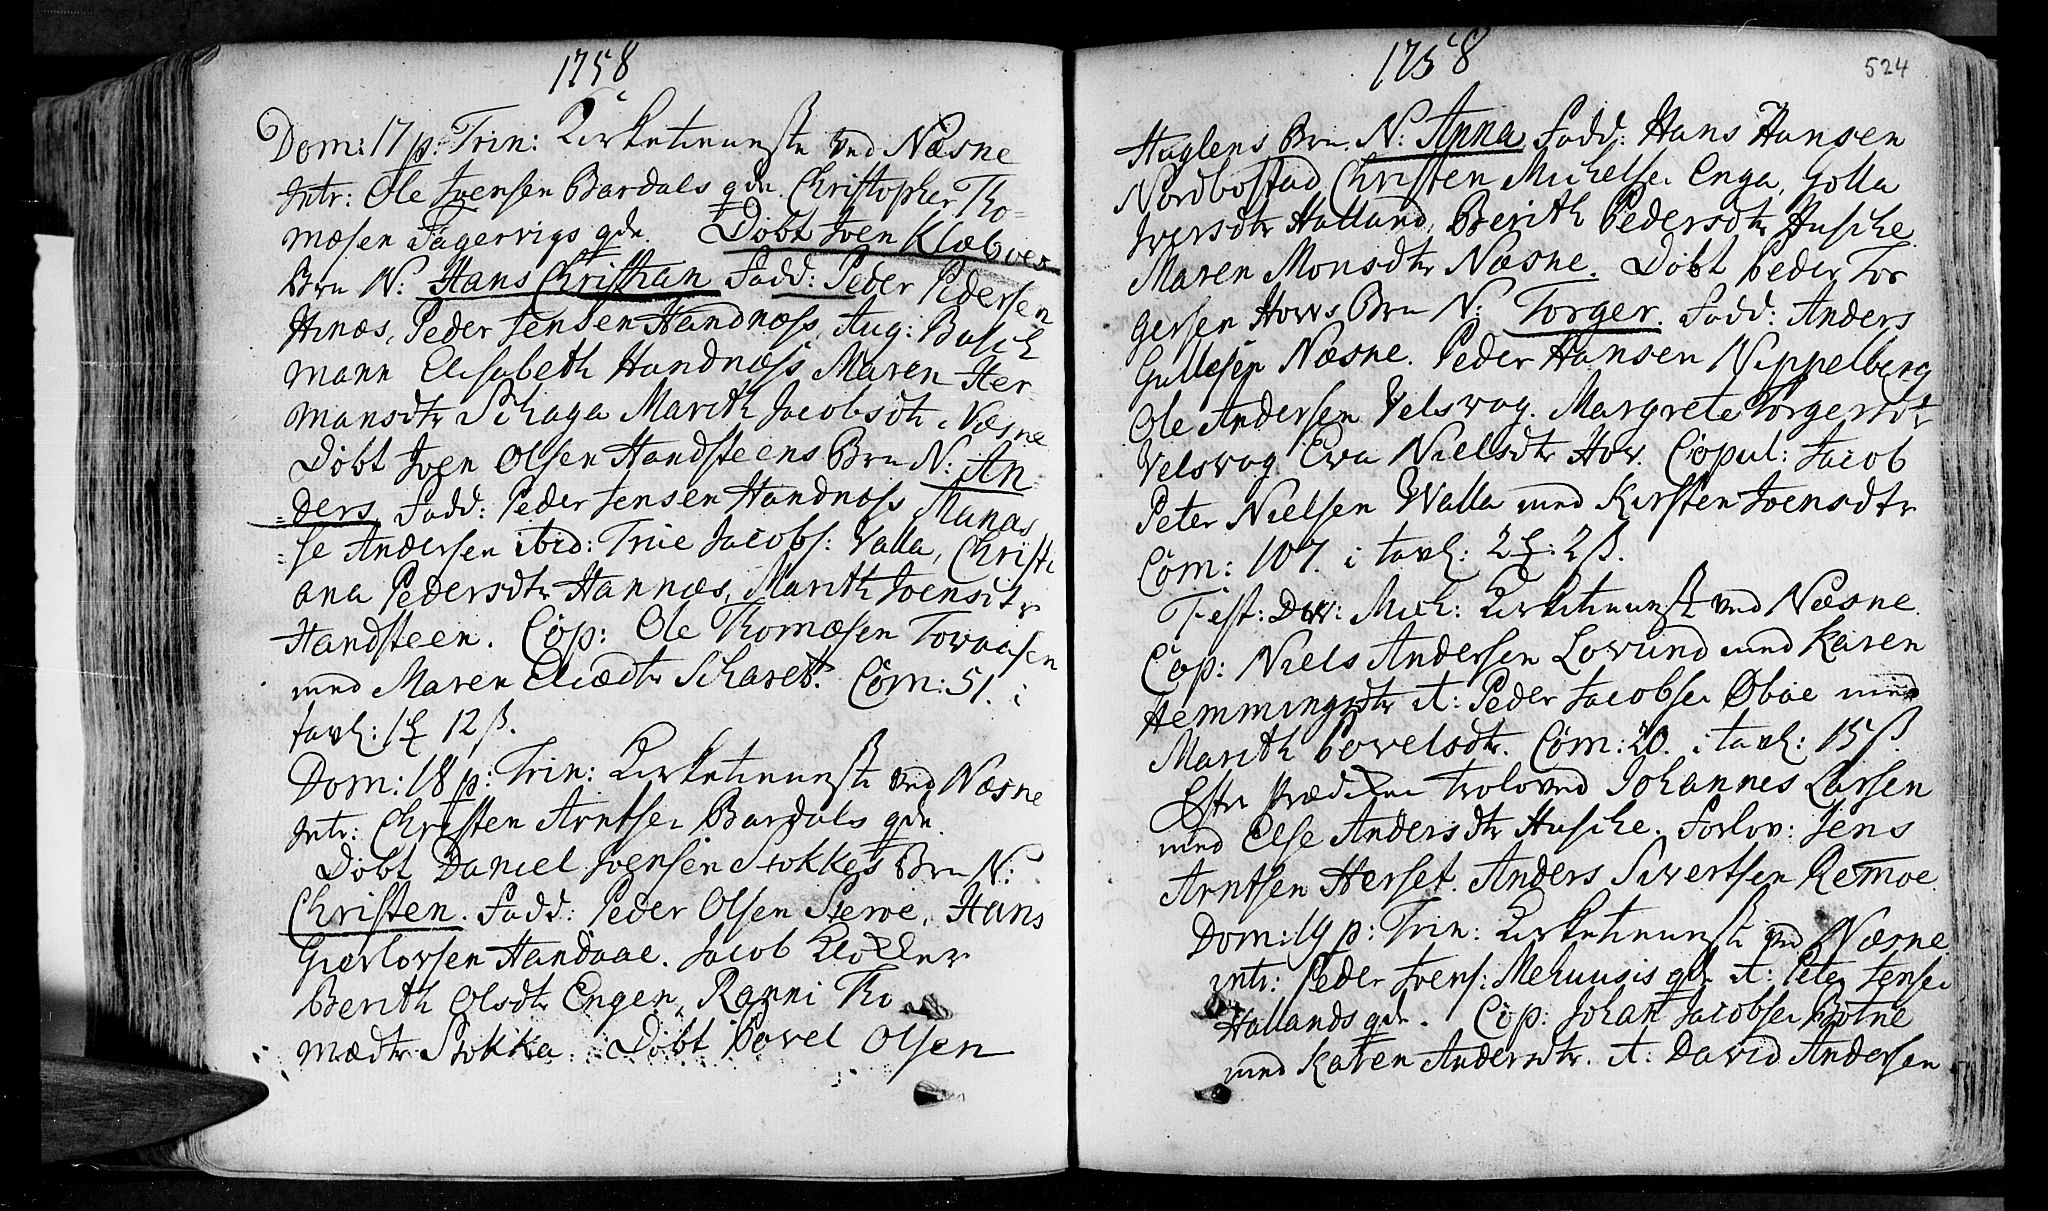 1758
Dom: 17 p: Trin: Kirketieneste ved Næsne
Intr: Ole Ivensen Bardals qde. Christopher Tho=
mæsen Fagervigs qde. Døbt Iven Klæboes
Brn N: Hans Christian Fadd: Peder Pedersen
Hinæs, Peder Jensen Handnæss, Aug: Busch
mann Elisabeth Handnæss Maren Her
mansdtr Schaga Marith Jacobsdtr Næsne
Døbt Iven Olsen Handsteens Brn N: An=
=ders Fadd: Peder Jensen Handnæss Manas
=se Andersen ibid: Trie Jacobs: Valla, Christi
ana Pedersdtr Hannæs, Marith Ivensdtr
Handsteen. Cop: Ole Thomæsen Toraasen
med Maren Eliædtr Scharet. Com: 51. i
tavl: 1 12 ß.
Dom: 18 p: Trin: Kirketieneste ved Næsne
Intr: Christen Arntsen Bardals qde.
Døbt Daniel Ivensen Stokkes Brn N:
Christen. Fadd: Peder Olsen Sterve, Hans
Gierlovsen Handaae. Jacob Klokker
Berith Olsdtr Engen, Ranni Tho
mædtr Stokka. Døbt Povel Olsen
1758
524
Huglens Brn. N: Anna Fadd: Hans Hansen
Nordbostad Christen Michelsen Enga, Golla
Iversdtr Halland, Berith Pedersdtr Husche
Maren Monsdtr Næsne. Døbt Peder Tor
gersen Hows Brn N: Torger. Fadd: Anders
Gullesen Næsne. Peder Hansen Nippelberg
Ole Andersen Velsvog. Margrete Torgersdtr
Velsvog Ewa Nielsdtr Hov. Copul: Jacob
Peter Nielsen Walla med Kirsten Ivensdtr
Com: 107. i tavl: 2 : 2 ß.
Fest: Div: Mich: Kirketieneste ved Næsne
Cop: Niels Andersen Lovund med Karen
Hemmingsdtr it: Peder Jacobsen Øboe med
Marith Povelsdtr. Com: 20. i tavl: 15 ß.
Efter Prædiken troloved Johannes Larsen
med Else Andersdtr Husche. Forlov: Jens
Arntsen Herset. Anders Siwertsen Remoe.
Dom: 19 p: Trin: Kirketieneste ved Næsne
intr: Peder Ivens: Mehuusis qde it: Peter Jensen
Hallands qde. Cop: Johan Jacobsen Botne
med Karen Andersdtr. it: David Andersen